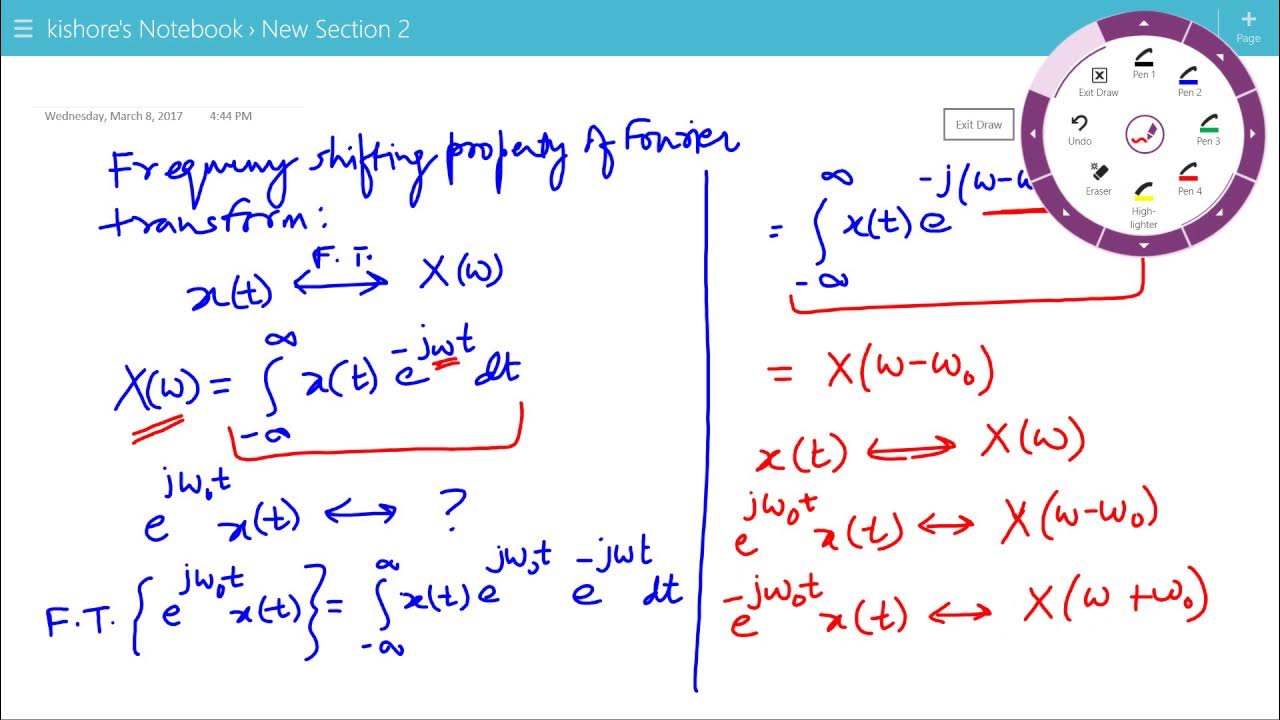 kishore's Notebook › New Section 2
Page
Wednesday, March 8, 2017 4:44 PM
Exit Draw
Exit Draw
Pen 1
Pen 2
Undo
Pen 3
Eraser
Pen 4
High-
lighter
Frequency shifting property of Fourier
transform:
F.T.
x(t) ⟷ X(ω)
X(ω) = ∫_{-∞}^{∞} x(t) e^{-jωt} dt
e^{jω₀t} x(t) ⟷ ?
F.T. { e^{jω₀t} x(t) } = ∫_{-∞}^{∞} x(t) e^{jω₀t} e^{-jωt} dt
= ∫_{-∞}^{∞} x(t) e^{-j(ω-ω
= X(ω-ω₀)
x(t) ⟺ X(ω)
e^{jω₀t} x(t) ⟷ X(ω-ω₀)
e^{-jω₀t} x(t) ⟷ X(ω+ω₀)